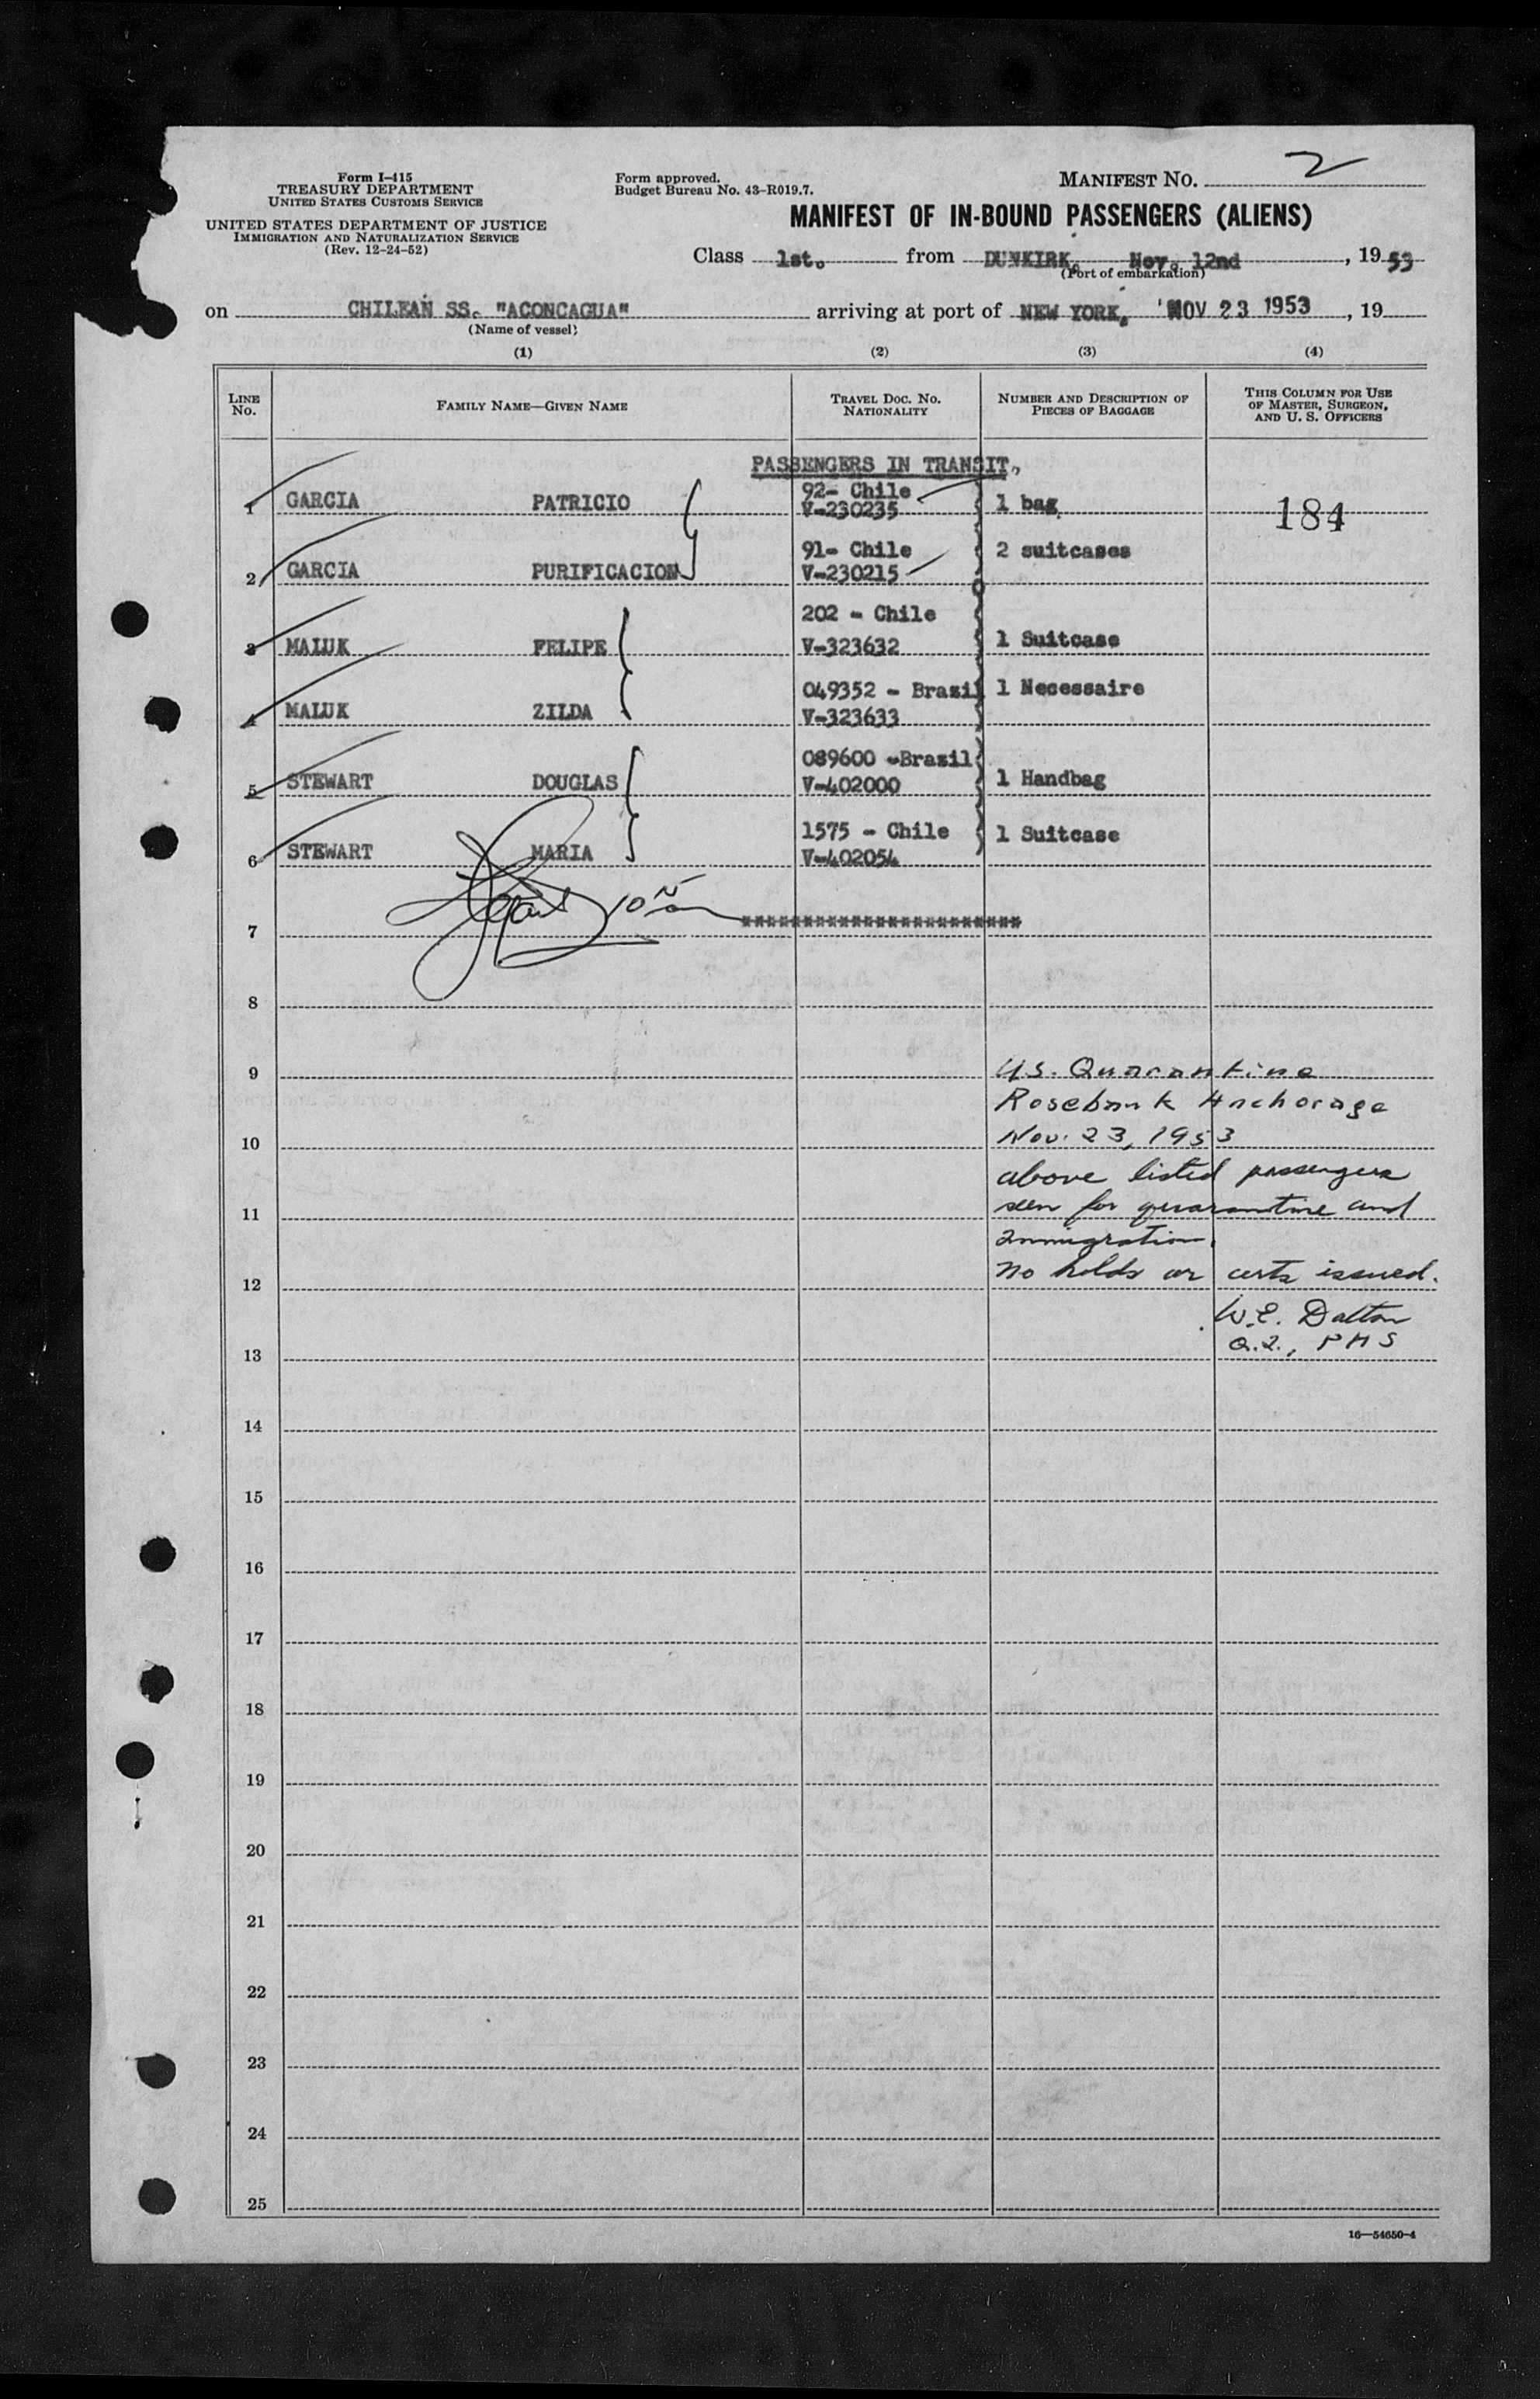 Form I-415
TREASURY DEPARTMENT
UNITED STATES CUSTOMS SERVICE
UNITED STATES DEPARTMENT OF JUSTICE
IMMIGRATION AND NATURALIZATION SERVICE
(Rev. 12-24-52)
Form approved.
Budget Bureau No. 43-R019.7.
MANIFEST NO. 2
MANIFEST OF IN-BOUND PASSENGERS (ALIENS)
Class 1st. from DUNKIRK, Nov. 12nd, 1953
(Port of embarkation)
on CHILEAN SS. "ACONCAGUA" arriving at port of NEW YORK, NOV 23 1953, 19
(Name of vessel)
(1) (2) (3) (4)
LINE NO. FAMILY NAME—GIVEN NAME TRAVEL DOC. NO. NATIONALITY NUMBER AND DESCRIPTION OF PIECES OF BAGGAGE THIS COLUMN FOR USE OF MASTER, SURGEON, AND U. S. OFFICERS
PASSENGERS IN TRANSIT,
92- Chile
1 GARCIA PATRICIO V-230235 1 bag 184
91- Chile 2 suitcases
2 GARCIA PURIFICACION V-230215
202 - Chile
3 MALUK FELIPE V-323632 1 Suitcase
049352 - Brazil 1 Necessaire
4 MALUK ZILDA V-323633
089600 -Brazil
5 STEWART DOUGLAS V-402000 1 Handbag
1575 - Chile 1 Suitcase
6 STEWART MARIA V-402054
10
7 **********************
8
9 U.S. Quarantine
Rosebank Anchorage
10 Nov. 23, 1953
above listed passengers
11 seen for quarantine and
immigration.
12 no holds or certs issued.
W.E. Dalton
13 Q.I., PHS
14
15
16
17
18
19
20
21
22
23
24
25
16—54650-4